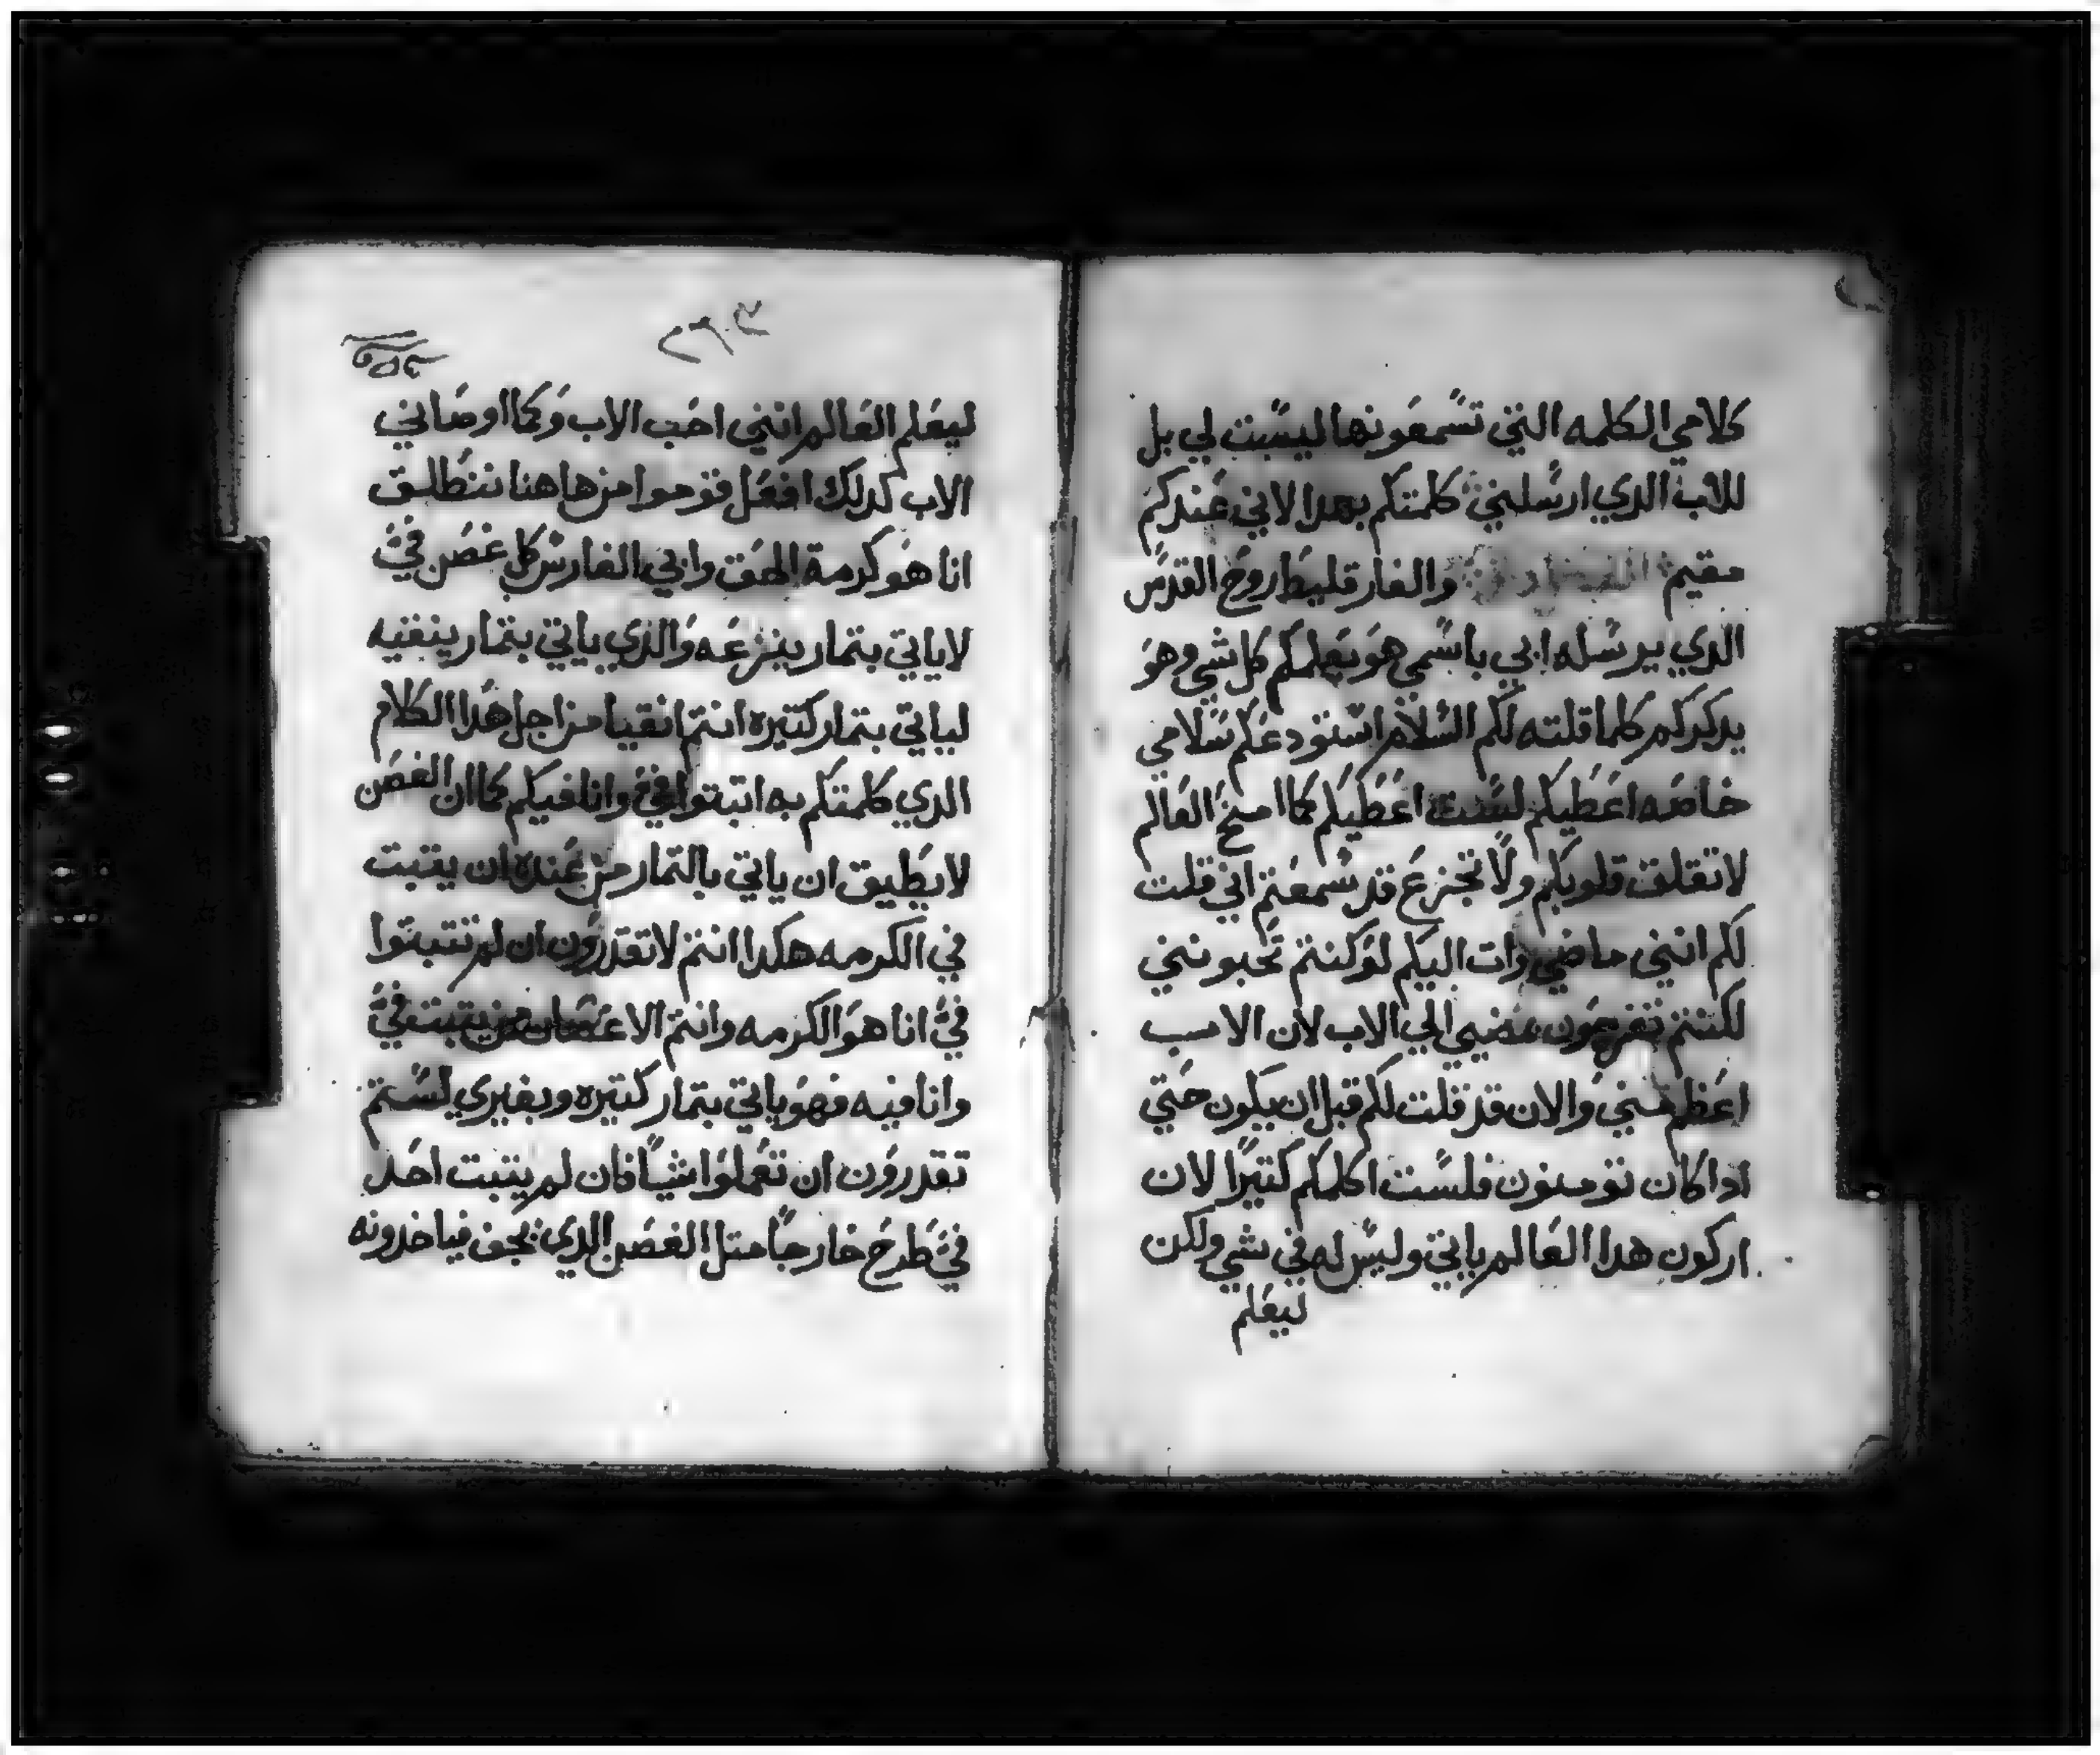 كلامي الكلمه التي تسمعونها ليست لي بل
للاب الدي ارسلني كلمتكم بهدا لاني عندكم
مقيم والفارقليط روح القدس
الدي يرسله ابي باسمي هو يعلمكم كل شي وهو
يدكركم كلما قلته لكم السلام استودعكم سلامي
خاصه اعطيكم لست اعطيكم كما منح العالم
لا تقلق قلوبكم ولا تجزع قد سمعتم اني قلت
لكم انني ماضي وات اليكم لو كنتم تحبونني
لكنتم تفرحون بمضيي الي الاب لان الاب
اعظم مني والان قد قلت لكم قبل ان يكون حتي
ادا كان تومنون فلست اكلمكم كتيرا لان
اركون هدا العالم ياتي وليس له في شي ولكن
ليعلم
٢٦٣
ليعلم العالم انني احب الاب وكما اوصاني
الاب كدلك افعل قوموا من هاهنا ننطلق
انا هو كرمة الحق وابي الفارس كل غصن في
لا ياتي بتمار ينزعه والدي ياتي بتمار ينقيه
لياتي بتمار كتيره انتم انقيا من اجل هدا الكلام
الدي كلمتكم به اتبتوا في وانا فيكم كما ان الغصن
لا يطيق ان ياتي بالتمار من عنده ان يتبت
في الكرمه هكدا انتم لا تقدرون ان لم تتبتوا
في انا هو الكرمه وانتم الاغصان من يتبت في
وانا فيه فهو ياتي بتمار كتيره وبغيري لستم
تقدرون ان تعملوا شيا فان لم يتبت احد
في طرح خارجا متل الغصن الدي يجف فياخدونه